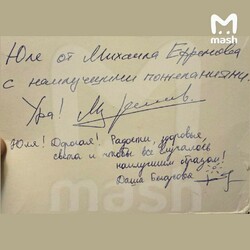 mash
Юле от Михаила Ефремова
с наилучшими пожеланиями.
Ура!
Юля! Дорогая! Радости, здоровья,
света и чтобы всё случалось
наилучшим образом!
Даша
mash